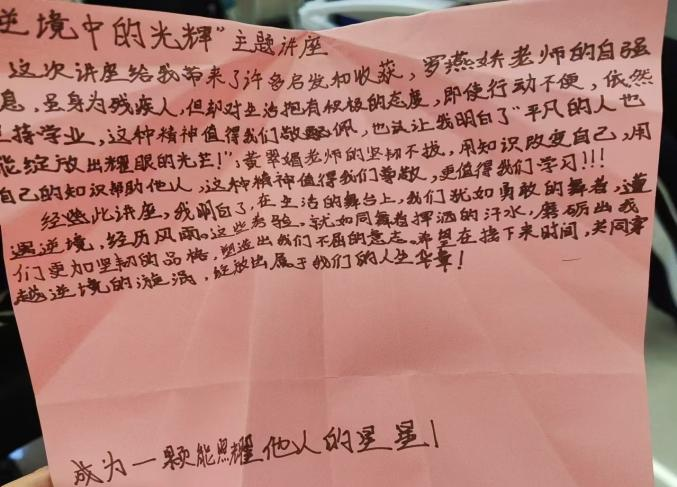 逆境中的光辉”主题讲座
这次讲座给我带来了许多启发和收获，罗燕娇老师的自强
息，虽身为残疾人，但却对生活抱有积极的态度，即使行动不便，依然
坚持学业，这种精神值得我们敬佩，也让我明白了“平凡的人也
能绽放出耀眼的光芒!”，黄翠娟老师的坚韧不拔，用知识改变自己，用
自己的知识帮助他人，这种精神值得我们尊敬，更值得我们学习!!!
经此讲座，我明白了，在生活的舞台上，我们犹如勇敢的舞者，遭
遇逆境，经历风雨。这些考验，就如同舞者挥洒的汗水，磨砺出我
们更加坚韧的品格，塑造出我们不屈的意志。希望在接下来时间，共同穿
越逆境的漩涡，绽放出属于我们的人生华章!
成为一颗能照耀他人的星星!